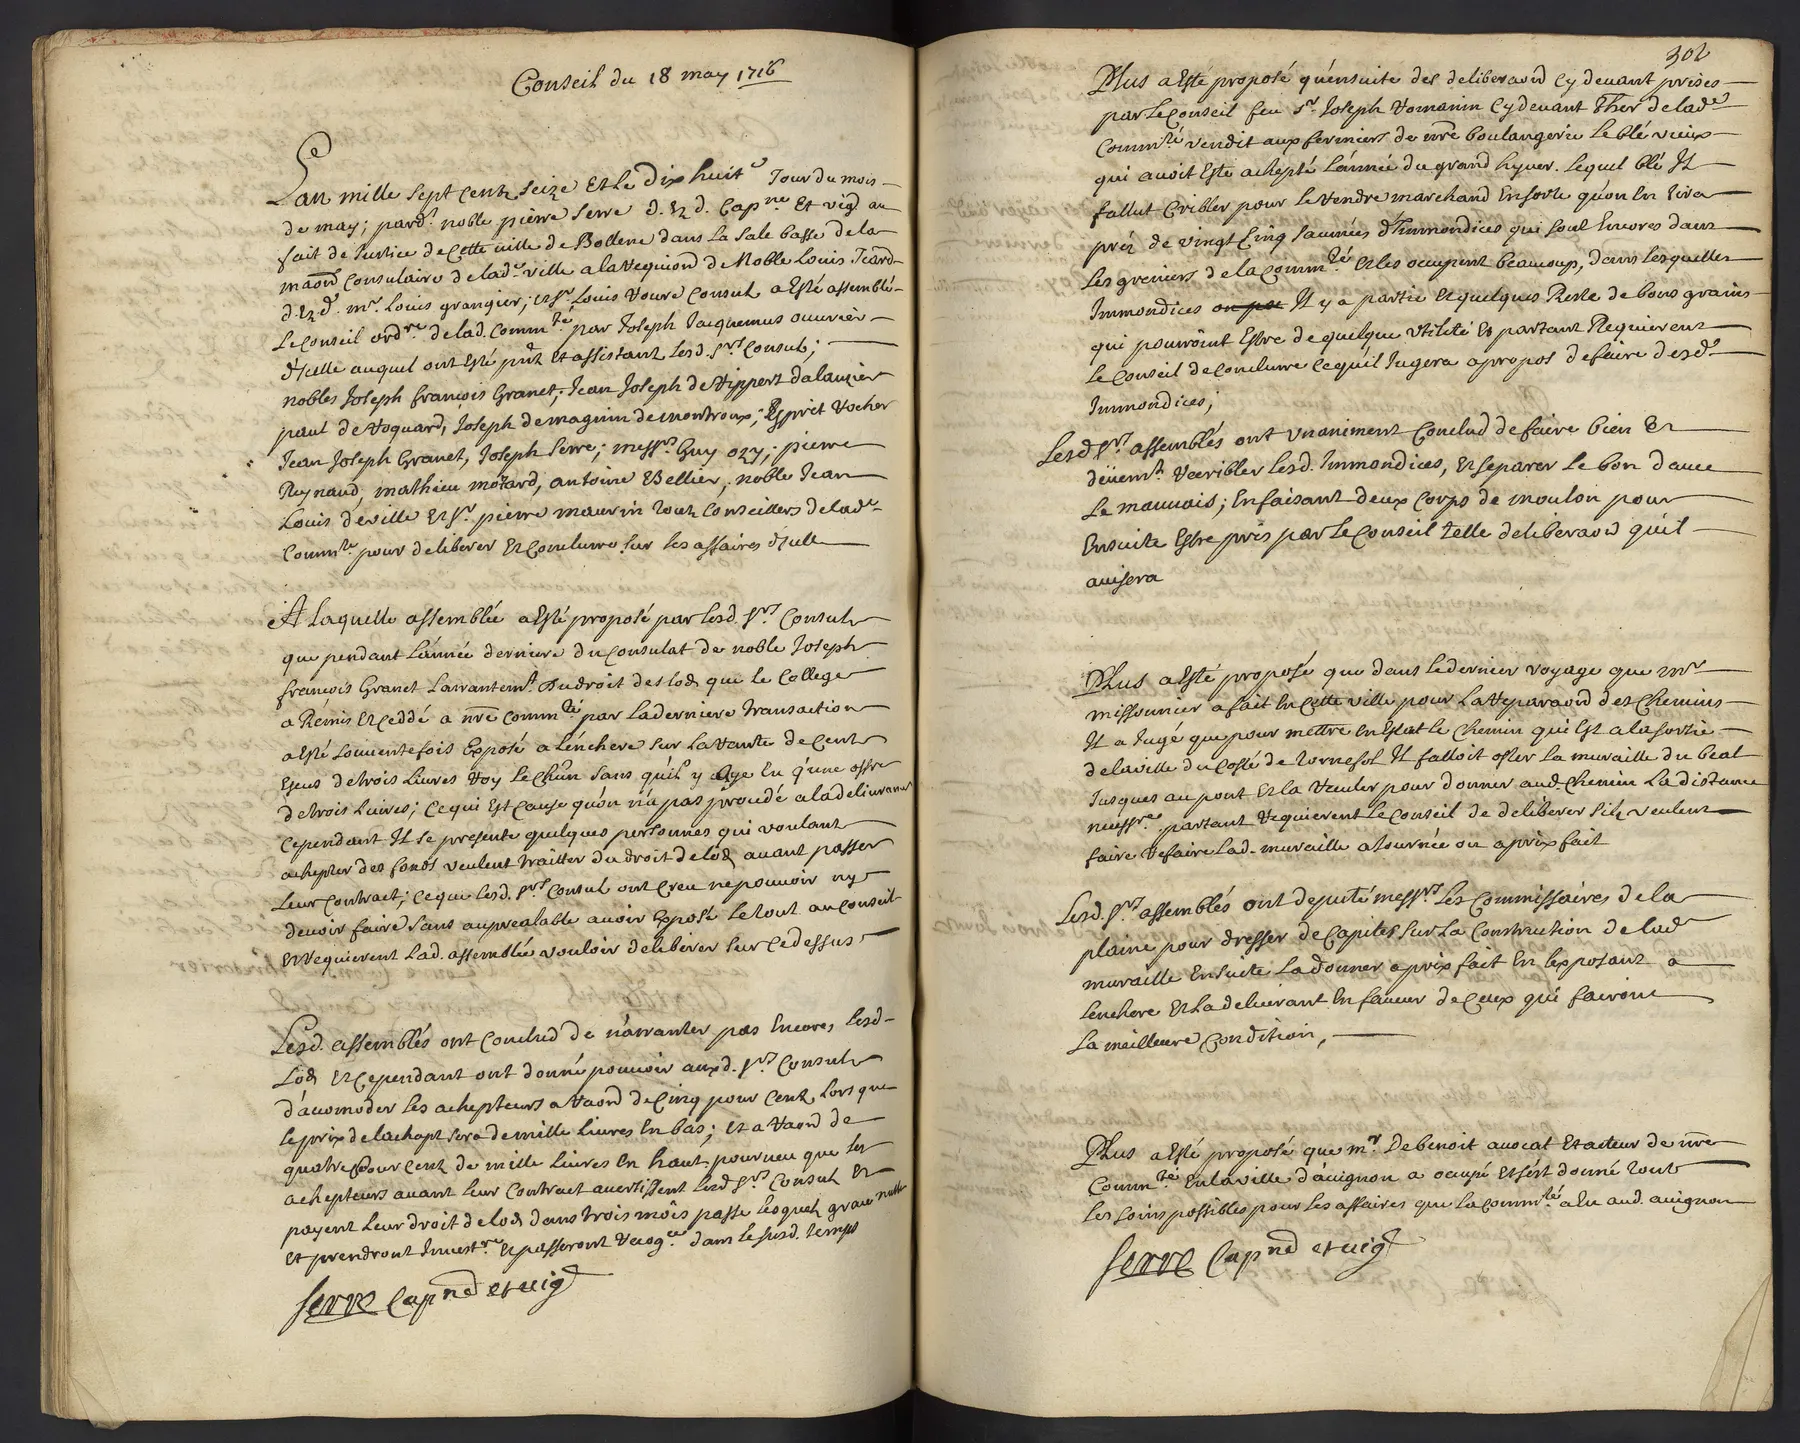 Conseil du 18 may 1716
Lan mille sept cents seize et le dix huit.e Jour du mois
de may; pard.t noble pierre serre d. et d. Cap.ne et vig.r au
fait de Justice de Cette ville de Bollene dans La Sale basse de la
maōn Consulaire de lad.e ville a la Requiōn de Noble Louis Jcard
d. et d. m.r Louis grangier; et s.r Louis Roure Consuls a Esté assemblé
Le Conseil ord.re de lad. Comm.té par Joseph Jacquemus ouvrier
d'Jcelle auquel ont Esté pn̄ts et assistants Lesd. s.rs Consuls;
nobles Joseph françois Granet, Jean Joseph de Rippert dalauzier
paul de Roquard, Joseph de magnin de montroux; Esprit Rocher
Jean Joseph Granet, Joseph Serre; mess.rs Guy ozy; pierre
Reynaud, mathieu motard, antoine Bellier; noble Jean
Louis d'eville et s.r pierre maurin touts Conseillers de lad.e
Comm.té pour deliberer et Conclurre sur les affaires d'Jcelle
A Laquelle assemblée a Esté proposé par Lesd. s.rs Consuls
que pendant L'année derniere du Consulat de noble Joseph
françois Granet Larrantem.t du droit des lods que le College
a Rémis et Ceddé a nr̄e Comm.té par La derniere transaction
a Esté souventefois Exposé a L'énchere sur La Rante de Cents
Escus de trois Livres Roy le chūn sans qu'il y aye Eu q'une offre
de trois Livres; Ce qui Est Cause qu'on n'a pas procedé a la delivrance
Cependant Jl se presente quelques personnes qui voulant
achepter des fonds veulent traitter du droit de lods avant passer
Leur Contract; Ce que Lesd. s.rs Consuls ont Creu ne pouvoir ny
devoir faire sans au prealable avoir Exposé Le tout au Conseil
et Requierent Lad. assemblée vouloir deliberer sur Ce dessus
Lesd. assemblés ont Conclud de n'arranter pas Encores Lesd.
Lods et Cependant ont donné pouvoir auxd. s.rs Consuls
d'acomoder Les achepteurs a Raōn de Cinq pour Cent, Lors que
Le prix de lachapt sera de mille Livres En bas; et a Raōn de
quatre pour Cent de mille Livres En haut pourveu que les
achepteurs avant Leur Contract avertissent Lesd. s.rs Consuls et
payent Leur droit de lods dans trois mois passé Lesquels grace nulle
et prendront Jnvest.re et passeront Recog.ce dans le susd. temps
Serre Cap.ne et vig.r
302
Plus a Esté proposé qu'ensuite des deliberaōns Cy devant prises
par Le Conseil feu s.r Joseph Romanin Cy devant Th̄er de lad.e
Comm.té vendit aux fermiers de nr̄e boulangerie Le blé vieux
qui avoit Esté achepté L'année du grand hyver. Lequel blé Jl
fallut Cribler pour Le Rendre marchand En sorte qu'on En tira
préz de vingt Cinq saumées d'Jmmondices qui sont Encores dans
Les greniers de la Comm.té et les occupent beaucoup, dans Lesquelles
Jmmondices Jl y a partie et quelques Reste de bons grains
qui pourroint Estre de quelque vtilité et partant Requierent
Le Conseil de Conclurre Ce qu'il Jugera a propos de faire desd.es
Jmmondices;
Lesd. s.rs assemblés ont vnaniment Conclud de faire bien et
deüem.t Recribler Lesd. Jmmondices, et separer Le bon d'avec
Le mauvais; En faisant deux Corps de moulon pour
Ensuite Estre pris par Le Conseil telle deliberaōn qu'il
avisera
Plus a Esté proposé que dans Le dernier voyage que m.r
missonnier a fait En Cette ville pour La Reparaōn des Chemins
Jl a Jugé que pour mettre En Estat le Chemin qui Est a la sortie
de la ville du Costé de tornesol Jl falloit oster La muraille du béal
Jusques au pont et la Reculer pour donner aud. Chemin La distance
necess.re partant Requierent Le Conseil de deliberer s'ils veulent
faire Refaire Lad. muraille a Journée ou a prix fait
Lesd. s.rs assemblés ont deputé mess.rs Les Commissaires de la
plaine pour dresser de Capites sur La Construction de lad.
muraille Ensuite La donner a prix fait En l'exposant a
L'enchere et La delivrant En faveur de Ceux qui fairont
La meilleure Condition,
Plus a Esté proposé que m.r De benoit avocat et acteur de nr̄e
Comm.té En la ville d'avignon a ocupé et s'est donné touts
Les soins possibles pour les affaires que La Comm.té a Eu aud. avignon
Serre Cap.ne et vig.r